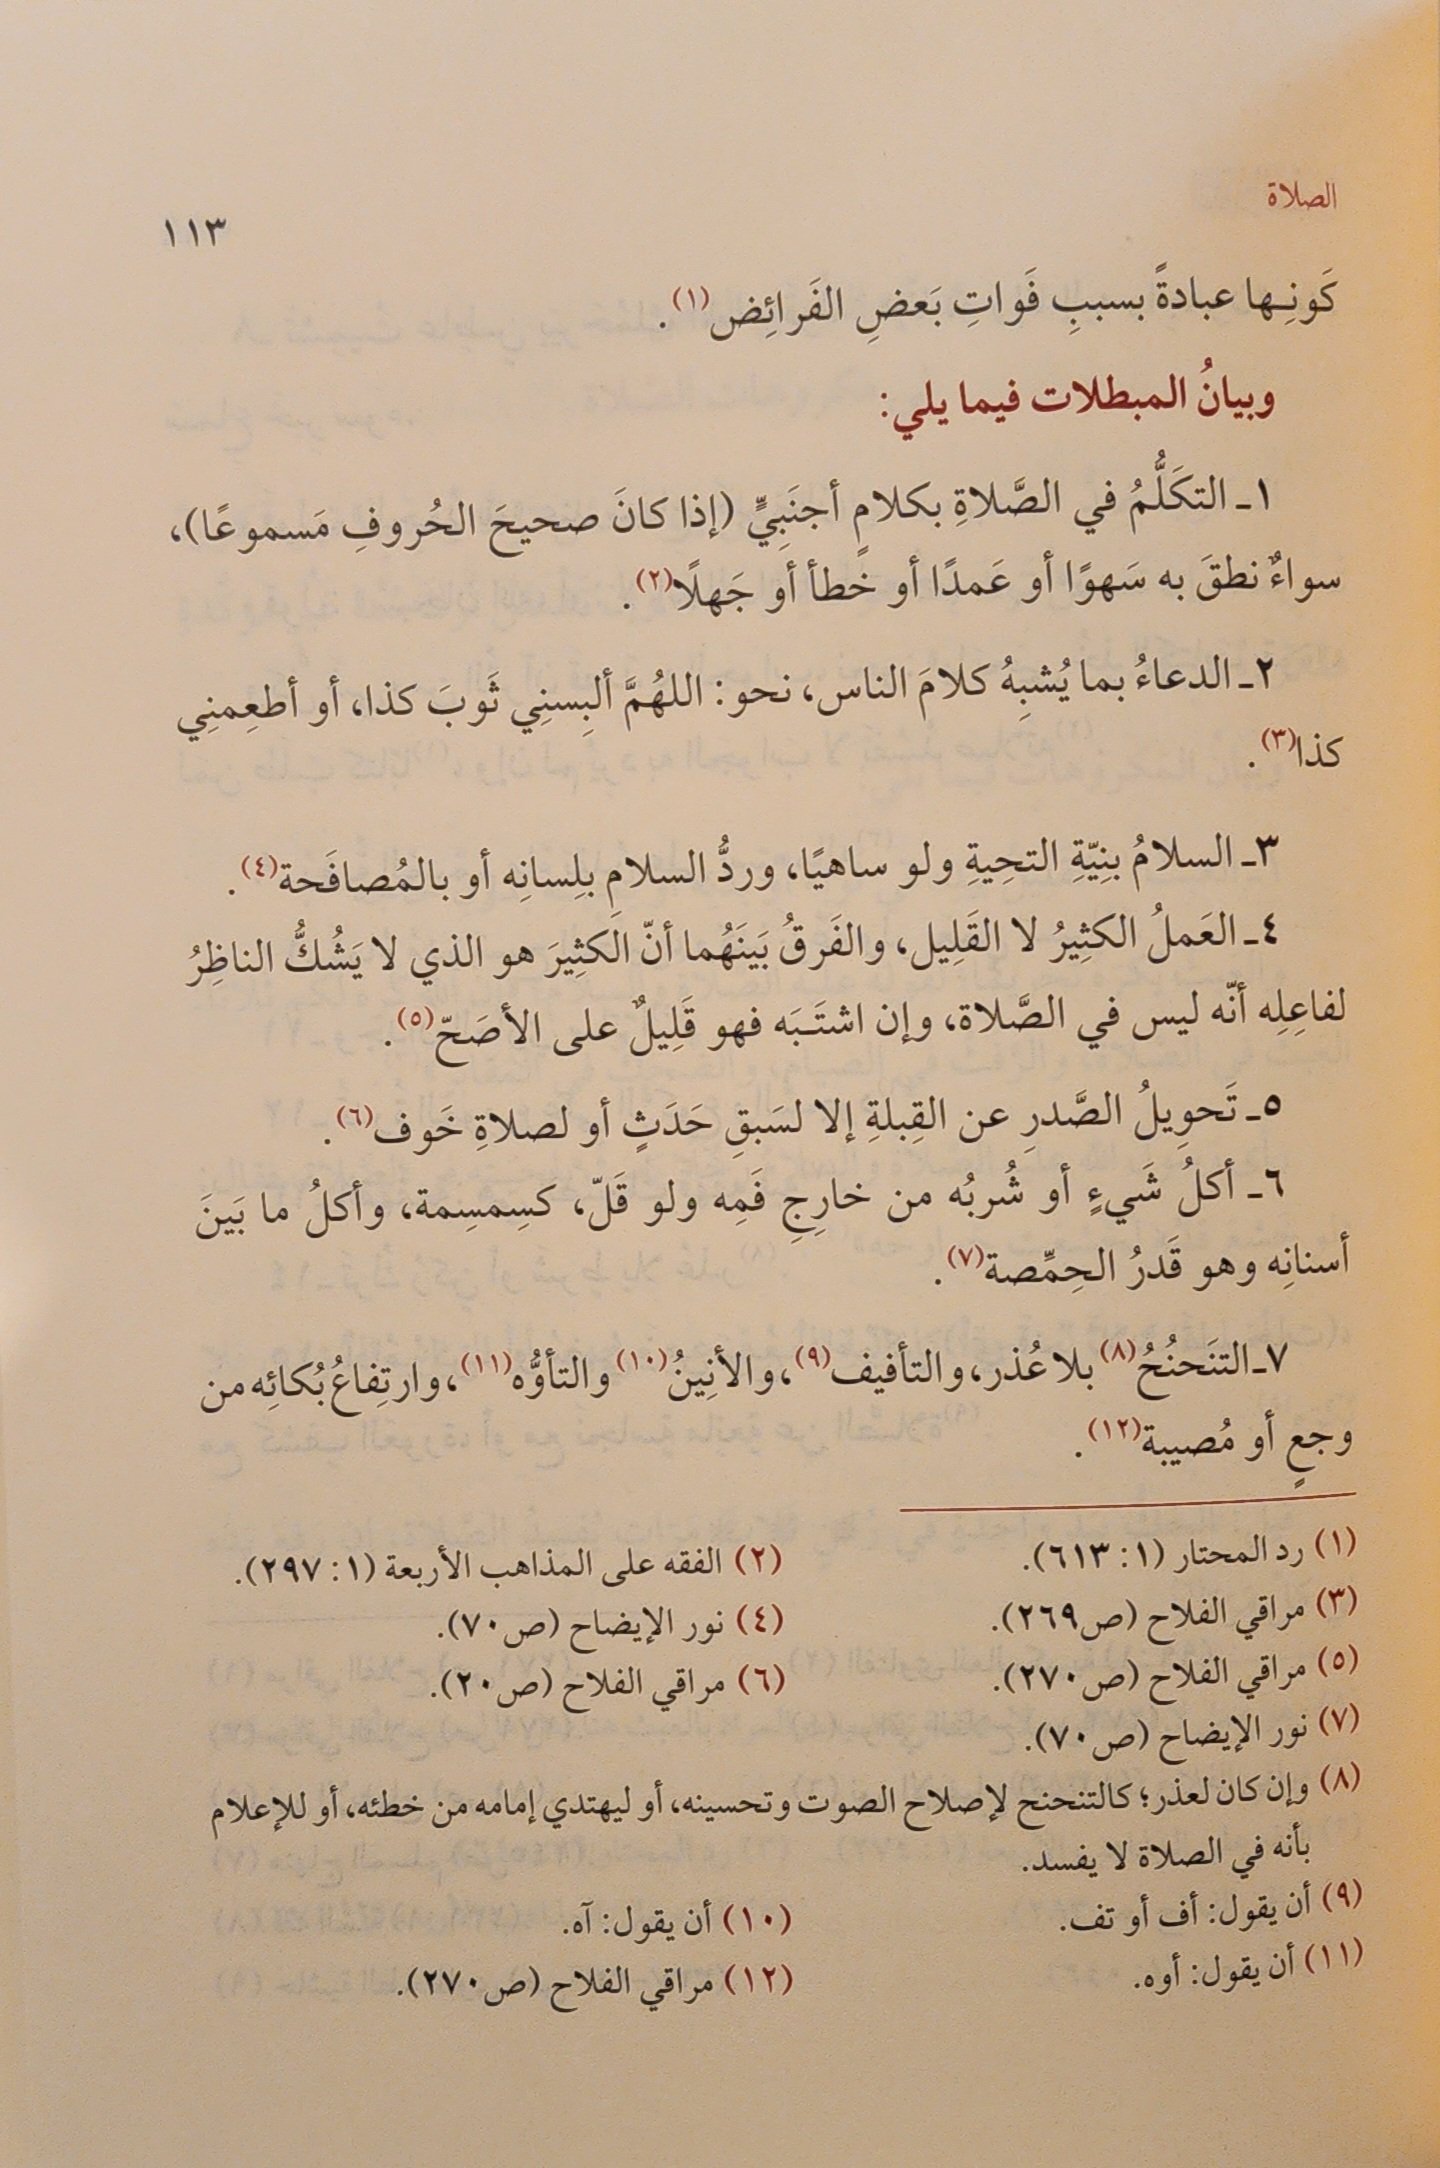 الصلاة
١١٣
كَونِـها عبادةً بسببِ فَواتِ بَعضِ الفَرائِض(١).
وبيانُ المبطلات فيما يلي:
١ـ التكَلُّمُ في الصَّلاةِ بكلامٍ أجنَبِيٍّ (إذا كانَ صحيحَ الحُروفِ مَسموعًا)،
سواءٌ نطقَ به سَهوًا أو عَمدًا أو خطأ أو جَهلًا(٢).
٢ـ الدعاءُ بما يُشبِهُ كلامَ الناس، نحو: اللهُمَّ ألبِسنِي ثَوبَ كذا، أو أطعِمنِي
كذا(٣).
٣ـ السلامُ بنِيّةِ التحِيةِ ولو ساهيًا، وردُّ السلامِ بلِسانِه أو بالمُصافَحة(٤).
٤ـ العَملُ الكثِيرُ لا القَلِيل، والفَرقُ بَينَهُما أنّ الكثِيرَ هو الذي لا يَشُكُّ الناظِرُ
لفاعِلِه أنّه ليس في الصَّلاة، وإن اشتَـبَه فهو قَلِيلٌ على الأصَحّ(٥).
٥ـ تَحوِيلُ الصَّدرِ عن القِبلةِ إلا لسَبقِ حَدَثٍ أو لصلاةِ خَوف(٦).
٦ـ أكلُ شَيءٍ أو شُربُه من خارِجِ فَمِه ولو قَلّ، كسِمسِمة، وأكلُ ما بَينَ
أسنانِه وهو قَدرُ الحِمِّصة(٧).
٧ـ التنَحنُحُ(٨) بلا عُذر، والتأفيف(٩)، والأنِينُ(١٠) والتأوُّه(١١)، وارتِفاعُ بُكائِه من
وجعٍ أو مُصيبة(١٢).
(١) رد المحتار (١: ٦١٣).
(٢) الفقه على المذاهب الأربعة (١: ٢٩٧).
(٣) مراقي الفلاح (ص٢٦٩).
(٤) نور الإيضاح (ص٧٠).
(٥) مراقي الفلاح (ص٢٧٠).
(٦) مراقي الفلاح (ص٢٠).
(٧) نور الإيضاح (ص٧٠).
(٨) وإن كان لعذر؛ كالتنحنح لإصلاح الصوت وتحسينه، أو ليهتدي إمامه من خطئه، أو للإعلام
بأنه في الصلاة لا يفسد.
(٩) أن يقول: أف أو تف.
(١٠) أن يقول: آه.
(١١) أن يقول: أوه.
(١٢) مراقي الفلاح (ص٢٧٠).